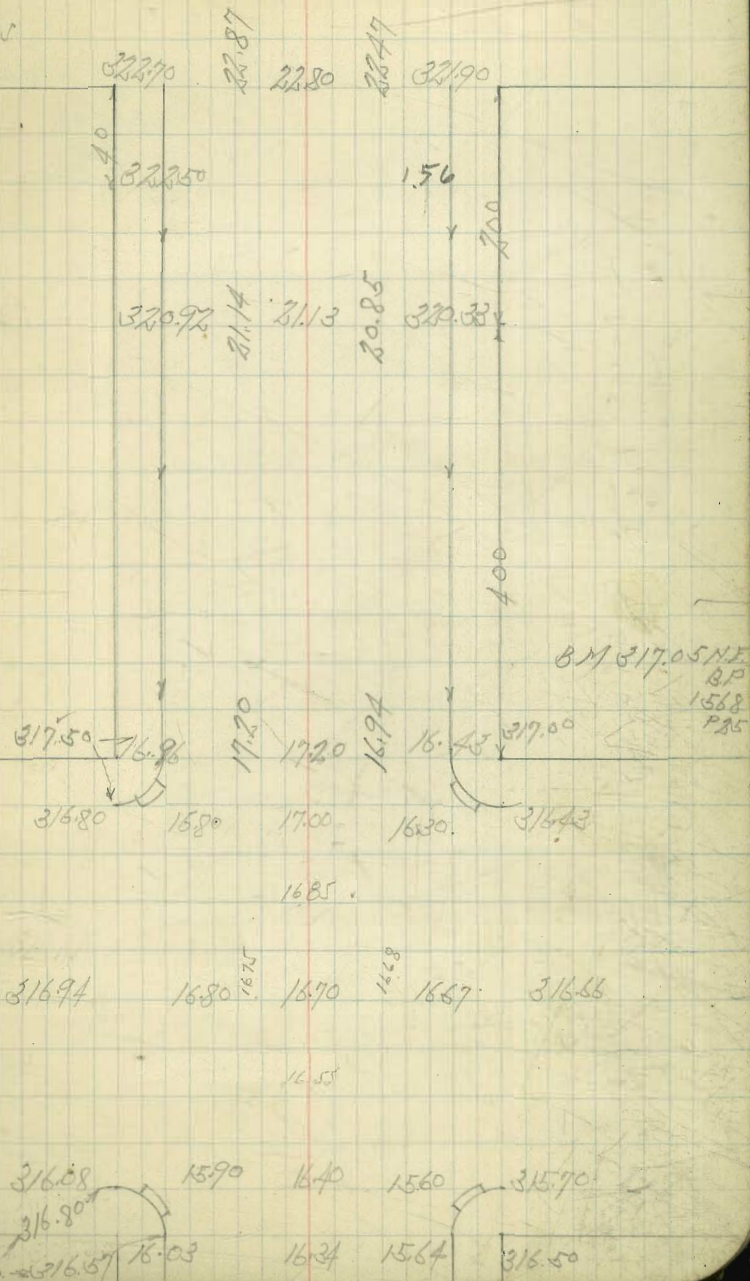 322.70 22.87 22.80 22.47 321.90
40
322.50 1.56
200
320.92 21.14 21.13 20.85 320.33
400
BM 317.05 N.E.
B.P
1568
P25
317.50 16.96 17.20 17.20 16.94 16.43 317.00
316.80 16.80 17.00 16.30 316.43
16.85
316.94 16.80 16.75 16.70 16.68 16.67 316.66
16.55
316.08 15.90 16.40 15.60 315.70
316.80
316.57 16.03 16.34 15.64 316.50